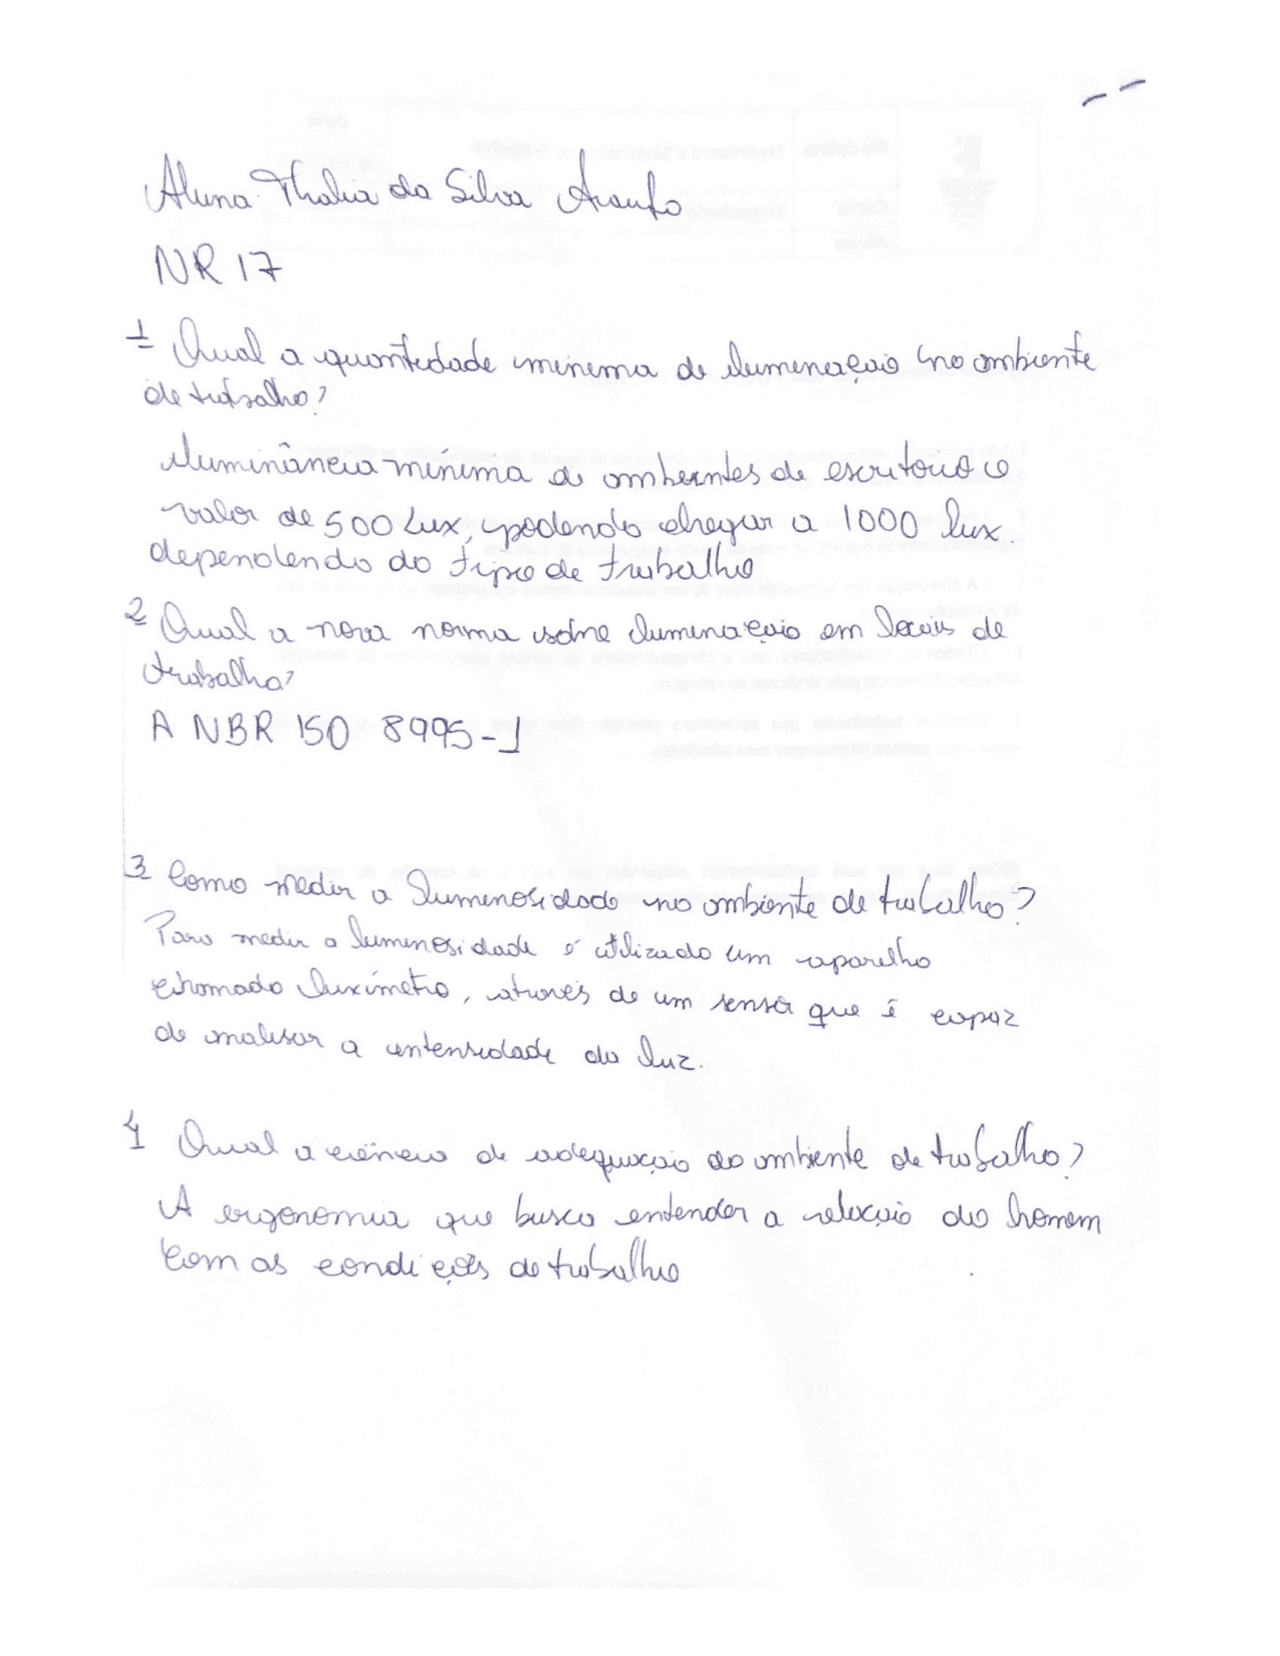 Aluna Thalia da Silva Araujo
NR 17
1 Qual a quantidade minima de iluminação no ambiente
de trabalho?
iluminância mínima de ambientes de escritorio e
valor de 500 Lux, podendo chegar a 1000 lux.
dependendo do tipo de trabalho
2 Qual a nova norma sobre iluminação em locais de
trabalho?
A NBR ISO 8995-1
3 Como medir a luminosidade no ambiente de trabalho?
Para medir a luminosidade é utilizado um aparelho
chamado luxímetro, através de um sensor que é capaz
de analisar a intensidade da luz.
4 Qual a ciência de adequação do ambiente de trabalho?
A ergonomia que busca entender a relação do homem
com as condições de trabalho